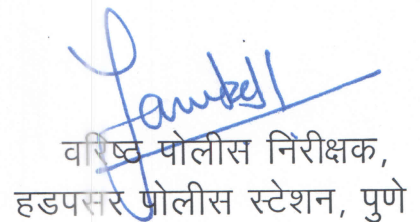 वरिष्ठ पोलीस निंरीक्षक,
हडपसर पोलीस स्टेशन, पुणे